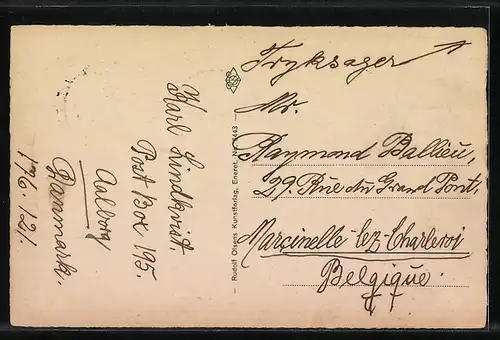 Karl Lindkvist.
Post Box 195.
Aalborg
Danmark.
17/6.121.
Rudolf Olsens Kunstforlag, Eneret. No. 4443
Tryksager
Mr.
Raymond Ballieu,
29. Rue du Grand Pont.
Marcinelle-lez-Charleroi
Belgique.